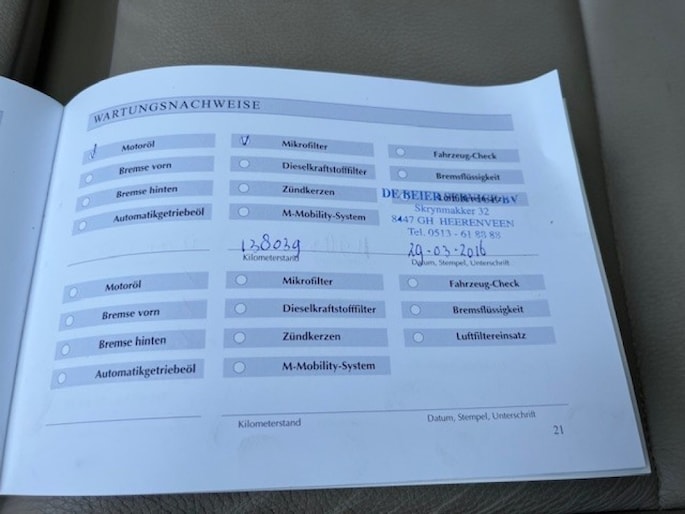 WARTUNGSNACHWEISE
Motoröl Mikrofilter Fahrzeug-Check
Bremse vorn Dieselkraftstofffilter Bremsflüssigkeit
Bremse hinten Zündkerzen Luftfiltereinsatz
Automatikgetriebeöl M-Mobility-System
DE BEIER SERVICE BV
Skrynmakker 32
8447 GH HEERENVEEN
Tel. 0513 - 61 88 88
138039 29-03-2016
Kilometerstand Datum, Stempel, Unterschrift
Motoröl Mikrofilter Fahrzeug-Check
Bremse vorn Dieselkraftstofffilter Bremsflüssigkeit
Bremse hinten Zündkerzen Luftfiltereinsatz
Automatikgetriebeöl M-Mobility-System
Kilometerstand Datum, Stempel, Unterschrift
21